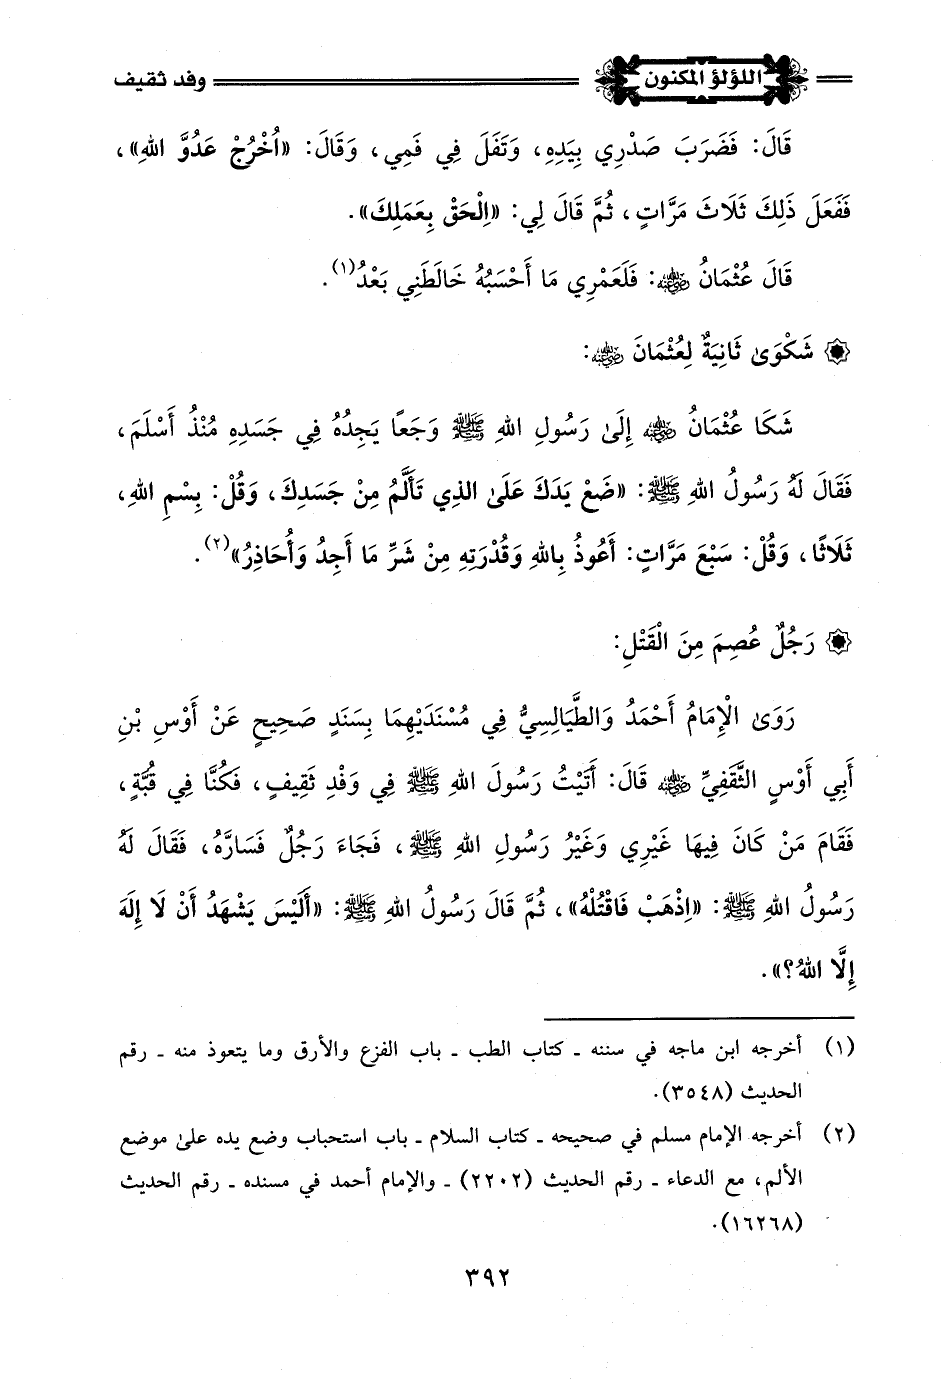 اللؤلؤ المكنون
وفد ثقيف
قَالَ: فَضَرَبَ صَدْرِي بِيَدِهِ، وَتَفَلَ فِي فَمِي، وَقَالَ: «اُخْرُجْ عَدُوَّ اللهِ»،
فَفَعَلَ ذَلِكَ ثَلَاثَ مَرَّاتٍ، ثُمَّ قَالَ لِي: «اِلْحَقْ بِعَمَلِكَ».
قَالَ عُثْمَانُ رضي الله عنه: فَلَعَمْرِي مَا أَحْسَبُهُ خَالَطَنِي بَعْدُ(١).
شَكْوَىٰ ثَانِيَةٌ لِعُثْمَانَ رضي الله عنه:
شَكَا عُثْمَانُ رضي الله عنه إِلَىٰ رَسُولِ اللهِ ﷺ وَجَعًا يَجِدُهُ فِي جَسَدِهِ مُنْذُ أَسْلَمَ،
فَقَالَ لَهُ رَسُولُ اللهِ ﷺ: «ضَعْ يَدَكَ عَلَىٰ الذِي تَأَلَّمُ مِنْ جَسَدِكَ، وَقُلْ: بِسْمِ اللهِ،
ثَلَاثًا، وَقُلْ: سَبْعَ مَرَّاتٍ: أَعُوذُ بِاللهِ وَقُدْرَتِهِ مِنْ شَرِّ مَا أَجِدُ وَأُحَاذِرُ»(٢).
رَجُلٌ عُصِمَ مِنَ الْقَتْلِ:
رَوَىٰ الْإِمَامُ أَحْمَدُ وَالطَّيَالِسِيُّ فِي مُسْنَدَيْهِمَا بِسَنَدٍ صَحِيحٍ عَنْ أَوْسِ بْنِ
أَبِي أَوْسٍ الثَّقَفِيِّ رضي الله عنه قَالَ: أَتَيْتُ رَسُولَ اللهِ ﷺ فِي وَفْدِ ثَقِيفٍ، فَكُنَّا فِي قُبَّةٍ،
فَقَامَ مَنْ كَانَ فِيهَا غَيْرِي وَغَيْرُ رَسُولِ اللهِ ﷺ، فَجَاءَ رَجُلٌ فَسَارَّهُ، فَقَالَ لَهُ
رَسُولُ اللهِ ﷺ: «اِذْهَبْ فَاقْتُلْهُ»، ثُمَّ قَالَ رَسُولُ اللهِ ﷺ: «أَلَيْسَ يَشْهَدُ أَنْ لَا إِلَهَ
إِلَّا اللهُ؟».
(١) أخرجه ابن ماجه في سننه ـ كتاب الطب ـ باب الفزع والأرق وما يتعوذ منه ـ رقم
الحديث (٣٥٤٨).
(٢) أخرجه الإمام مسلم في صحيحه ـ كتاب السلام ـ باب استحباب وضع يده علىٰ موضع
الألم، مع الدعاء ـ رقم الحديث (٢٢٠٢) ـ والإمام أحمد في مسنده ـ رقم الحديث
(١٦٢٦٨).
٣٩٢